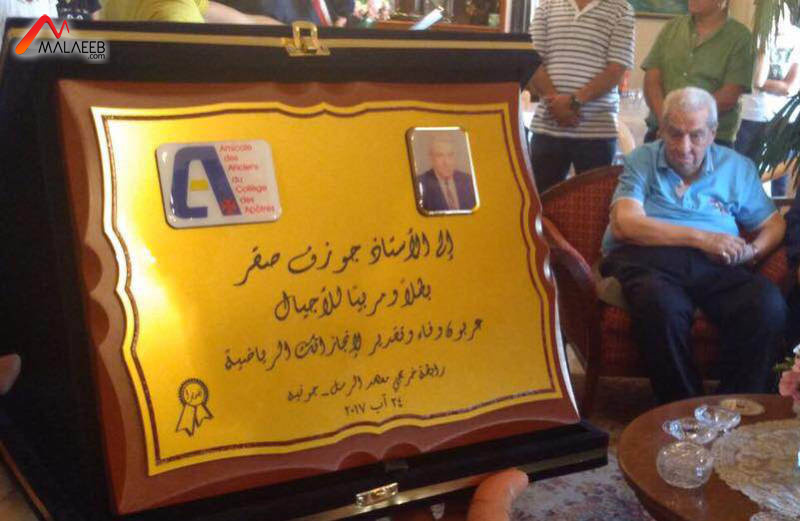 MALAEEB
.com
Amicale
des
Anciens
du
Collège
des
Apôtres
إلى الأستاذ جوزف صقر
بطلاً ومربيًا للأجيال
عربون وفاء وتقدير لإنجازاتك الرياضية
رابطة خريجي معهد الرسل - جونيه
٢٤ آب ٢٠١٧